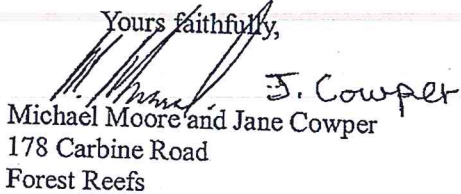 Yours faithfully,
J. Cowper
Michael Moore and Jane Cowper
178 Carbine Road
Forest Reefs